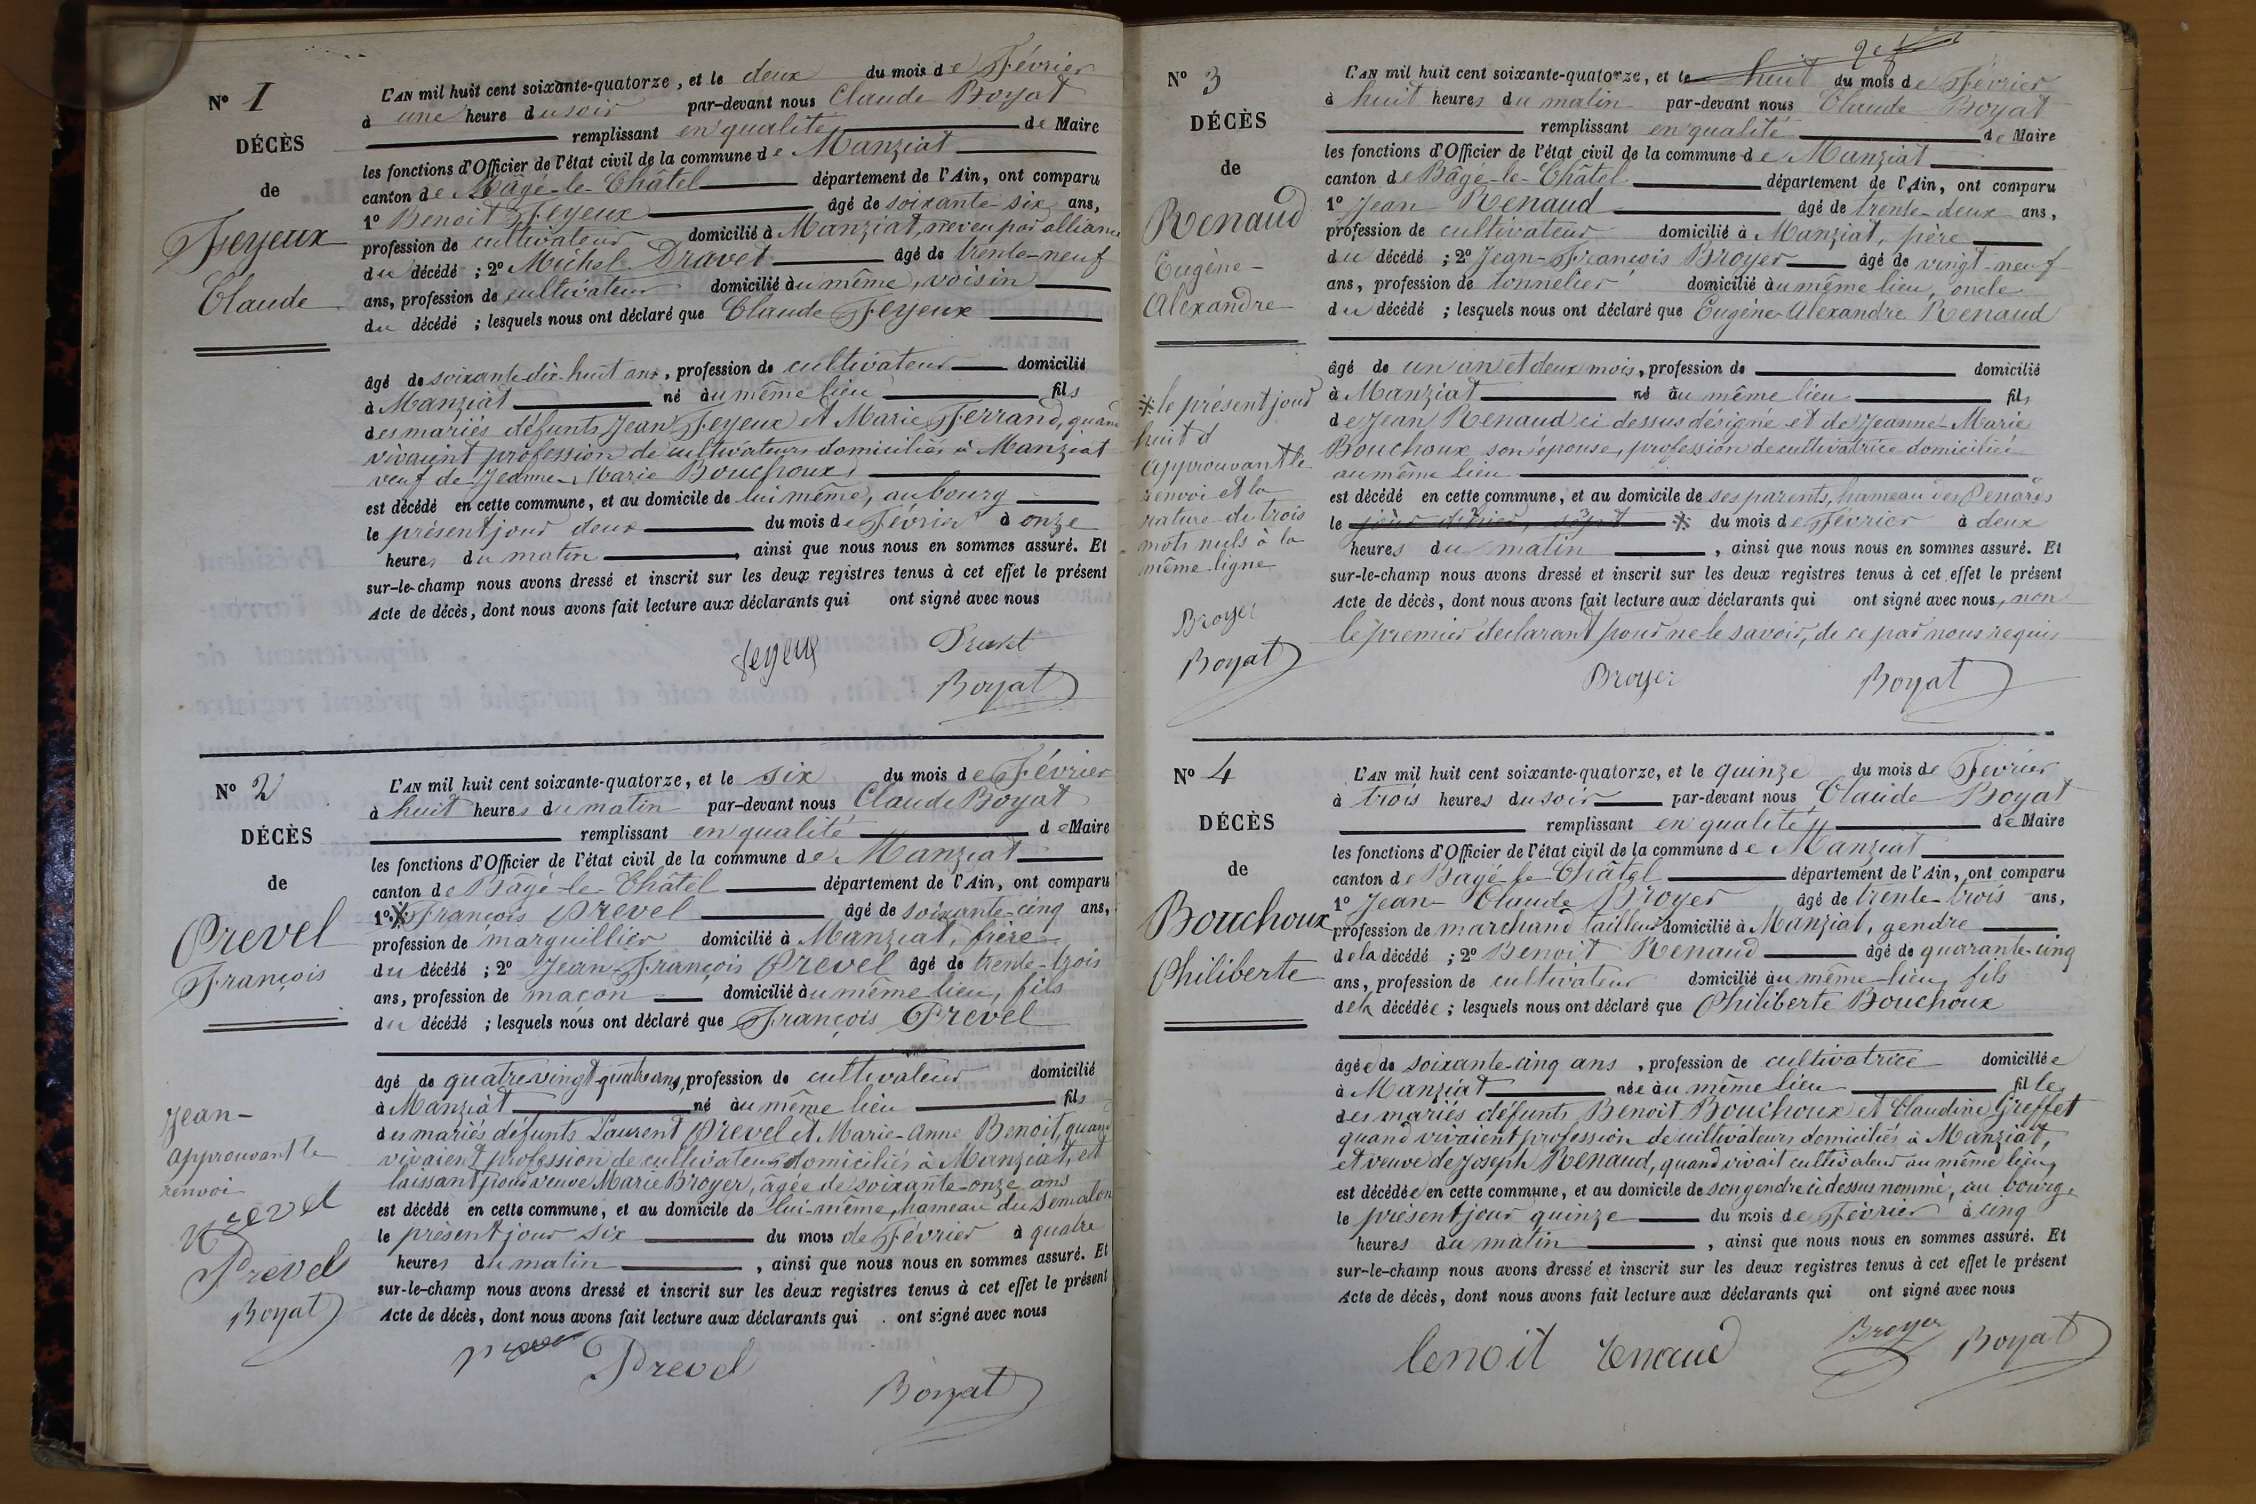 N° 1
DÉCÈS
de
Feyeux
Claude
L'AN mil huit cent soixante-quatorze, et le deux du mois de Février
à une heure du soir par-devant nous Claude Boyat
remplissant en qualité de Maire
les fonctions d'Officier de l'état civil de la commune de Manziat
canton de Bâgé-le-Châtel département de l'Ain, ont comparu
1° Benoit Feyeux âgé de soixante-six ans,
profession de cultivateur domicilié à Manziat, neveu par alliance
du décédé ; 2° Michel Dravet âgé de trente-neuf
ans, profession de cultivateur domicilié au même, voisin
du décédé ; lesquels nous ont déclaré que Claude Feyeux
âgé de soixante dix-huit ans, profession de cultivateur domicilié
à Manziat né au même lieu fils
des mariés défunts Jean Feyeux et Marie Ferrand, quand
vivaient profession de cultivateurs domiciliés à Manziat
veuf de Jeanne-Marie Bouchoux
est décédé en cette commune, et au domicile de lui même, au bourg
le présent jour deux du mois de Février à onze
heures du matin, ainsi que nous nous en sommes assuré. Et
sur-le-champ nous avons dressé et inscrit sur les deux registres tenus à cet effet le présent
Acte de décès, dont nous avons fait lecture aux déclarants qui ont signé avec nous
feyeux
Boyat
N° 2
DÉCÈS
de
Prevel
François
Jean-
approuvant le
renvoi
Prevel
Boyat
L'AN mil huit cent soixante-quatorze, et le six du mois de Février
à huit heures du matin par-devant nous Claude Boyat
remplissant en qualité de Maire
les fonctions d'Officier de l'état civil de la commune de Manziat
canton de Bâgé-le-Châtel département de l'Ain, ont comparu
1° François Prevel âgé de soixante-cinq ans,
profession de marguillier domicilié à Manziat, frère
du décédé ; 2° Jean-François Prevel âgé de trente-trois
ans, profession de maçon domicilié au même lieu, fils
du décédé ; lesquels nous ont déclaré que François Prevel
âgé de quatre vingt quatre ans, profession de cultivateur domicilié
à Manziat né au même lieu fils
des mariés défunts Laurent Prevel et Marie-Anne Benoit, quand
vivaient profession de cultivateurs domiciliés à Manziat, et
laissant pour veuve Marie Broyer, âgée de soixante-onze ans
est décédé en cette commune, et au domicile de lui-même, hameau du Semalon
le présent jour six du mois de Février à quatre
heures du matin, ainsi que nous nous en sommes assuré. Et
sur-le-champ nous avons dressé et inscrit sur les deux registres tenus à cet effet le présent
Acte de décès, dont nous avons fait lecture aux déclarants qui ont signé avec nous
Prevel
Boyat
N° 3
DÉCÈS
de
Renaud
Eugène-
Alexandre
※ le présent jour
huit d
approuvant le
renvoi et la
rature de trois
mots nuls à la
même ligne
Broyer
Boyat
L'AN mil huit cent soixante-quatorze, et le huit du mois de Février
à huit heures du matin par-devant nous Claude Boyat
remplissant en qualité de Maire
les fonctions d'Officier de l'état civil de la commune de Manziat
canton de Bâgé-le-Châtel département de l'Ain, ont comparu
1° Jean Renaud âgé de trente-deux ans,
profession de cultivateur domicilié à Manziat, père
du décédé ; 2° Jean-François Broyer âgé de vingt-neuf
ans, profession de tonnelier domicilié au même lieu, oncle
du décédé ; lesquels nous ont déclaré que Eugène Alexandre Renaud
âgé de un an et deux mois, profession de domicilié
à Manziat né au même lieu fils
de Jean Renaud ci dessus désigné et de Jeanne-Marie
Bouchoux son épouse, profession de cultivatrice domiciliée
au même lieu
est décédé en cette commune, et au domicile de ses parents, hameau des Penards
le jour d'hier, sept ※ du mois de Février à deux
heures du matin, ainsi que nous nous en sommes assuré. Et
sur-le-champ nous avons dressé et inscrit sur les deux registres tenus à cet effet le présent
Acte de décès, dont nous avons fait lecture aux déclarants qui ont signé avec nous, non
le premier déclarant pour ne le savoir, de ce par nous requis
Broyer
Boyat
N° 4
DÉCÈS
de
Bouchoux
Philiberte
L'AN mil huit cent soixante-quatorze, et le quinze du mois de Février
à trois heures du soir par-devant nous Claude Boyat
remplissant en qualité de Maire
les fonctions d'Officier de l'état civil de la commune de Manziat
canton de Bagé-le-Châtel département de l'Ain, ont comparu
1° Jean-Claude Broyer âgé de trente-trois ans,
profession de marchand tailleur domicilié à Manziat, gendre
de la décédé ; 2° Benoit Renaud âgé de quarante-cinq
ans, profession de cultivateur domicilié au même lieu, fils
de la décédée ; lesquels nous ont déclaré que Philiberte Bouchoux
âgée de soixante-cinq ans, profession de cultivatrice domiciliée
à Manziat née au même lieu fille
des mariés défunts Benoit Bouchoux et Claudine Greffet
quand vivaient profession de cultivateurs domiciliés à Manziat,
et veuve de Joseph Renaud, quand vivait cultivateur au même lieu,
est décédée en cette commune, et au domicile de son gendre ci dessus nommé, au bourg,
le présent jour quinze du mois de Février à cinq
heures du matin, ainsi que nous nous en sommes assuré. Et
sur-le-champ nous avons dressé et inscrit sur les deux registres tenus à cet effet le présent
Acte de décès, dont nous avons fait lecture aux déclarants qui ont signé avec nous
benoit renaud
Broyer
Boyat